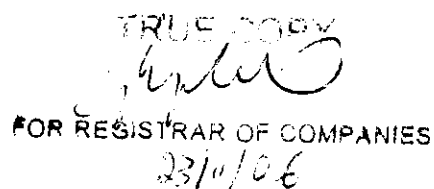 TRUE COPY
FOR REGISTRAR OF COMPANIES
23/11/06